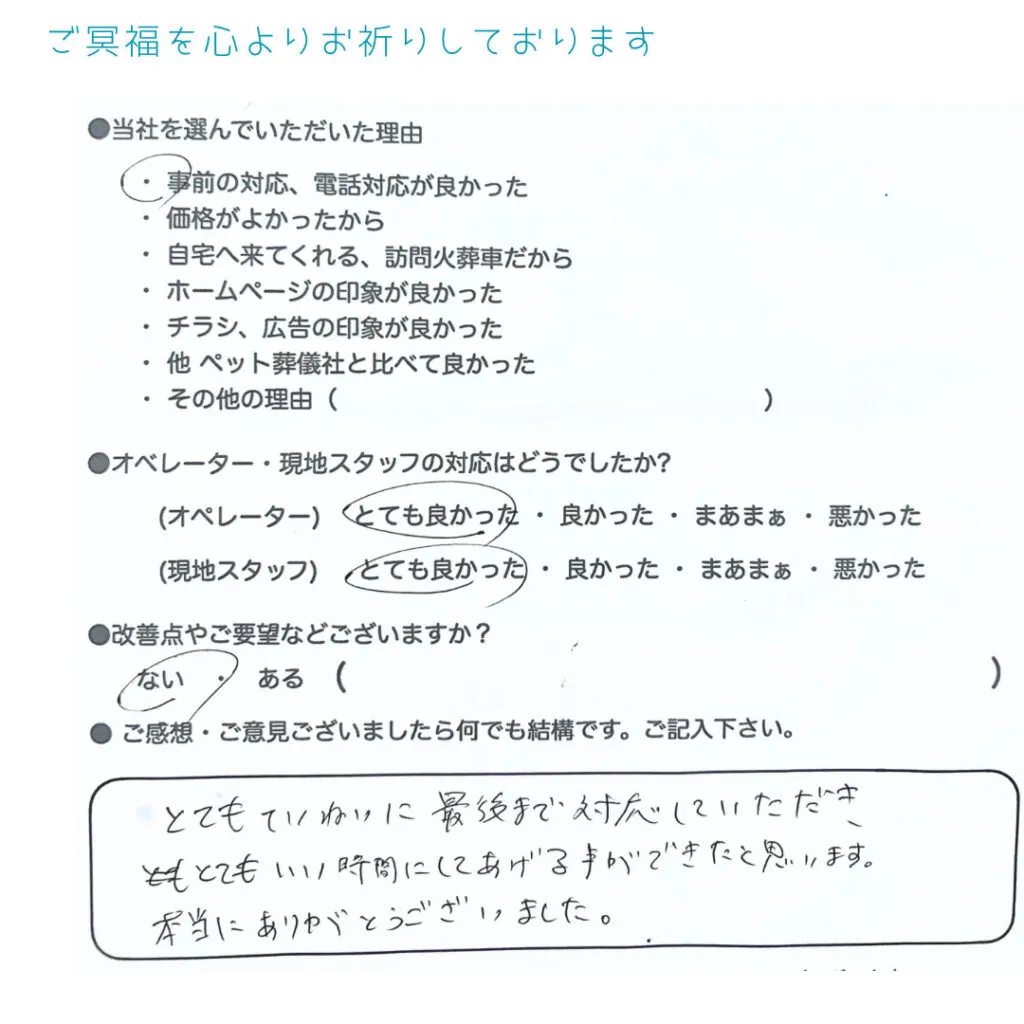 ご冥福を心よりお祈りしております
●当社を選んでいただいた理由
・ 事前の対応、電話対応が良かった
・ 価格がよかったから
・ 自宅へ来てくれる、訪問火葬車だから
・ ホームページの印象が良かった
・ チラシ、広告の印象が良かった
・ 他 ペット葬儀社と比べて良かった
・ その他の理由（ ）
●オペレーター・現地スタッフの対応はどうでしたか?
(オペレーター) とても良かった ・ 良かった ・ まあまぁ ・ 悪かった
(現地スタッフ) とても良かった ・ 良かった ・ まあまぁ ・ 悪かった
●改善点やご要望などございますか？
ない ・ ある ( )
● ご感想・ご意見ございましたら何でも結構です。ご記入下さい。
とてもていねいに最後まで対応していただき、
とてもいい時間にしてあげる事ができたと思います。
本当にありがとうございました。